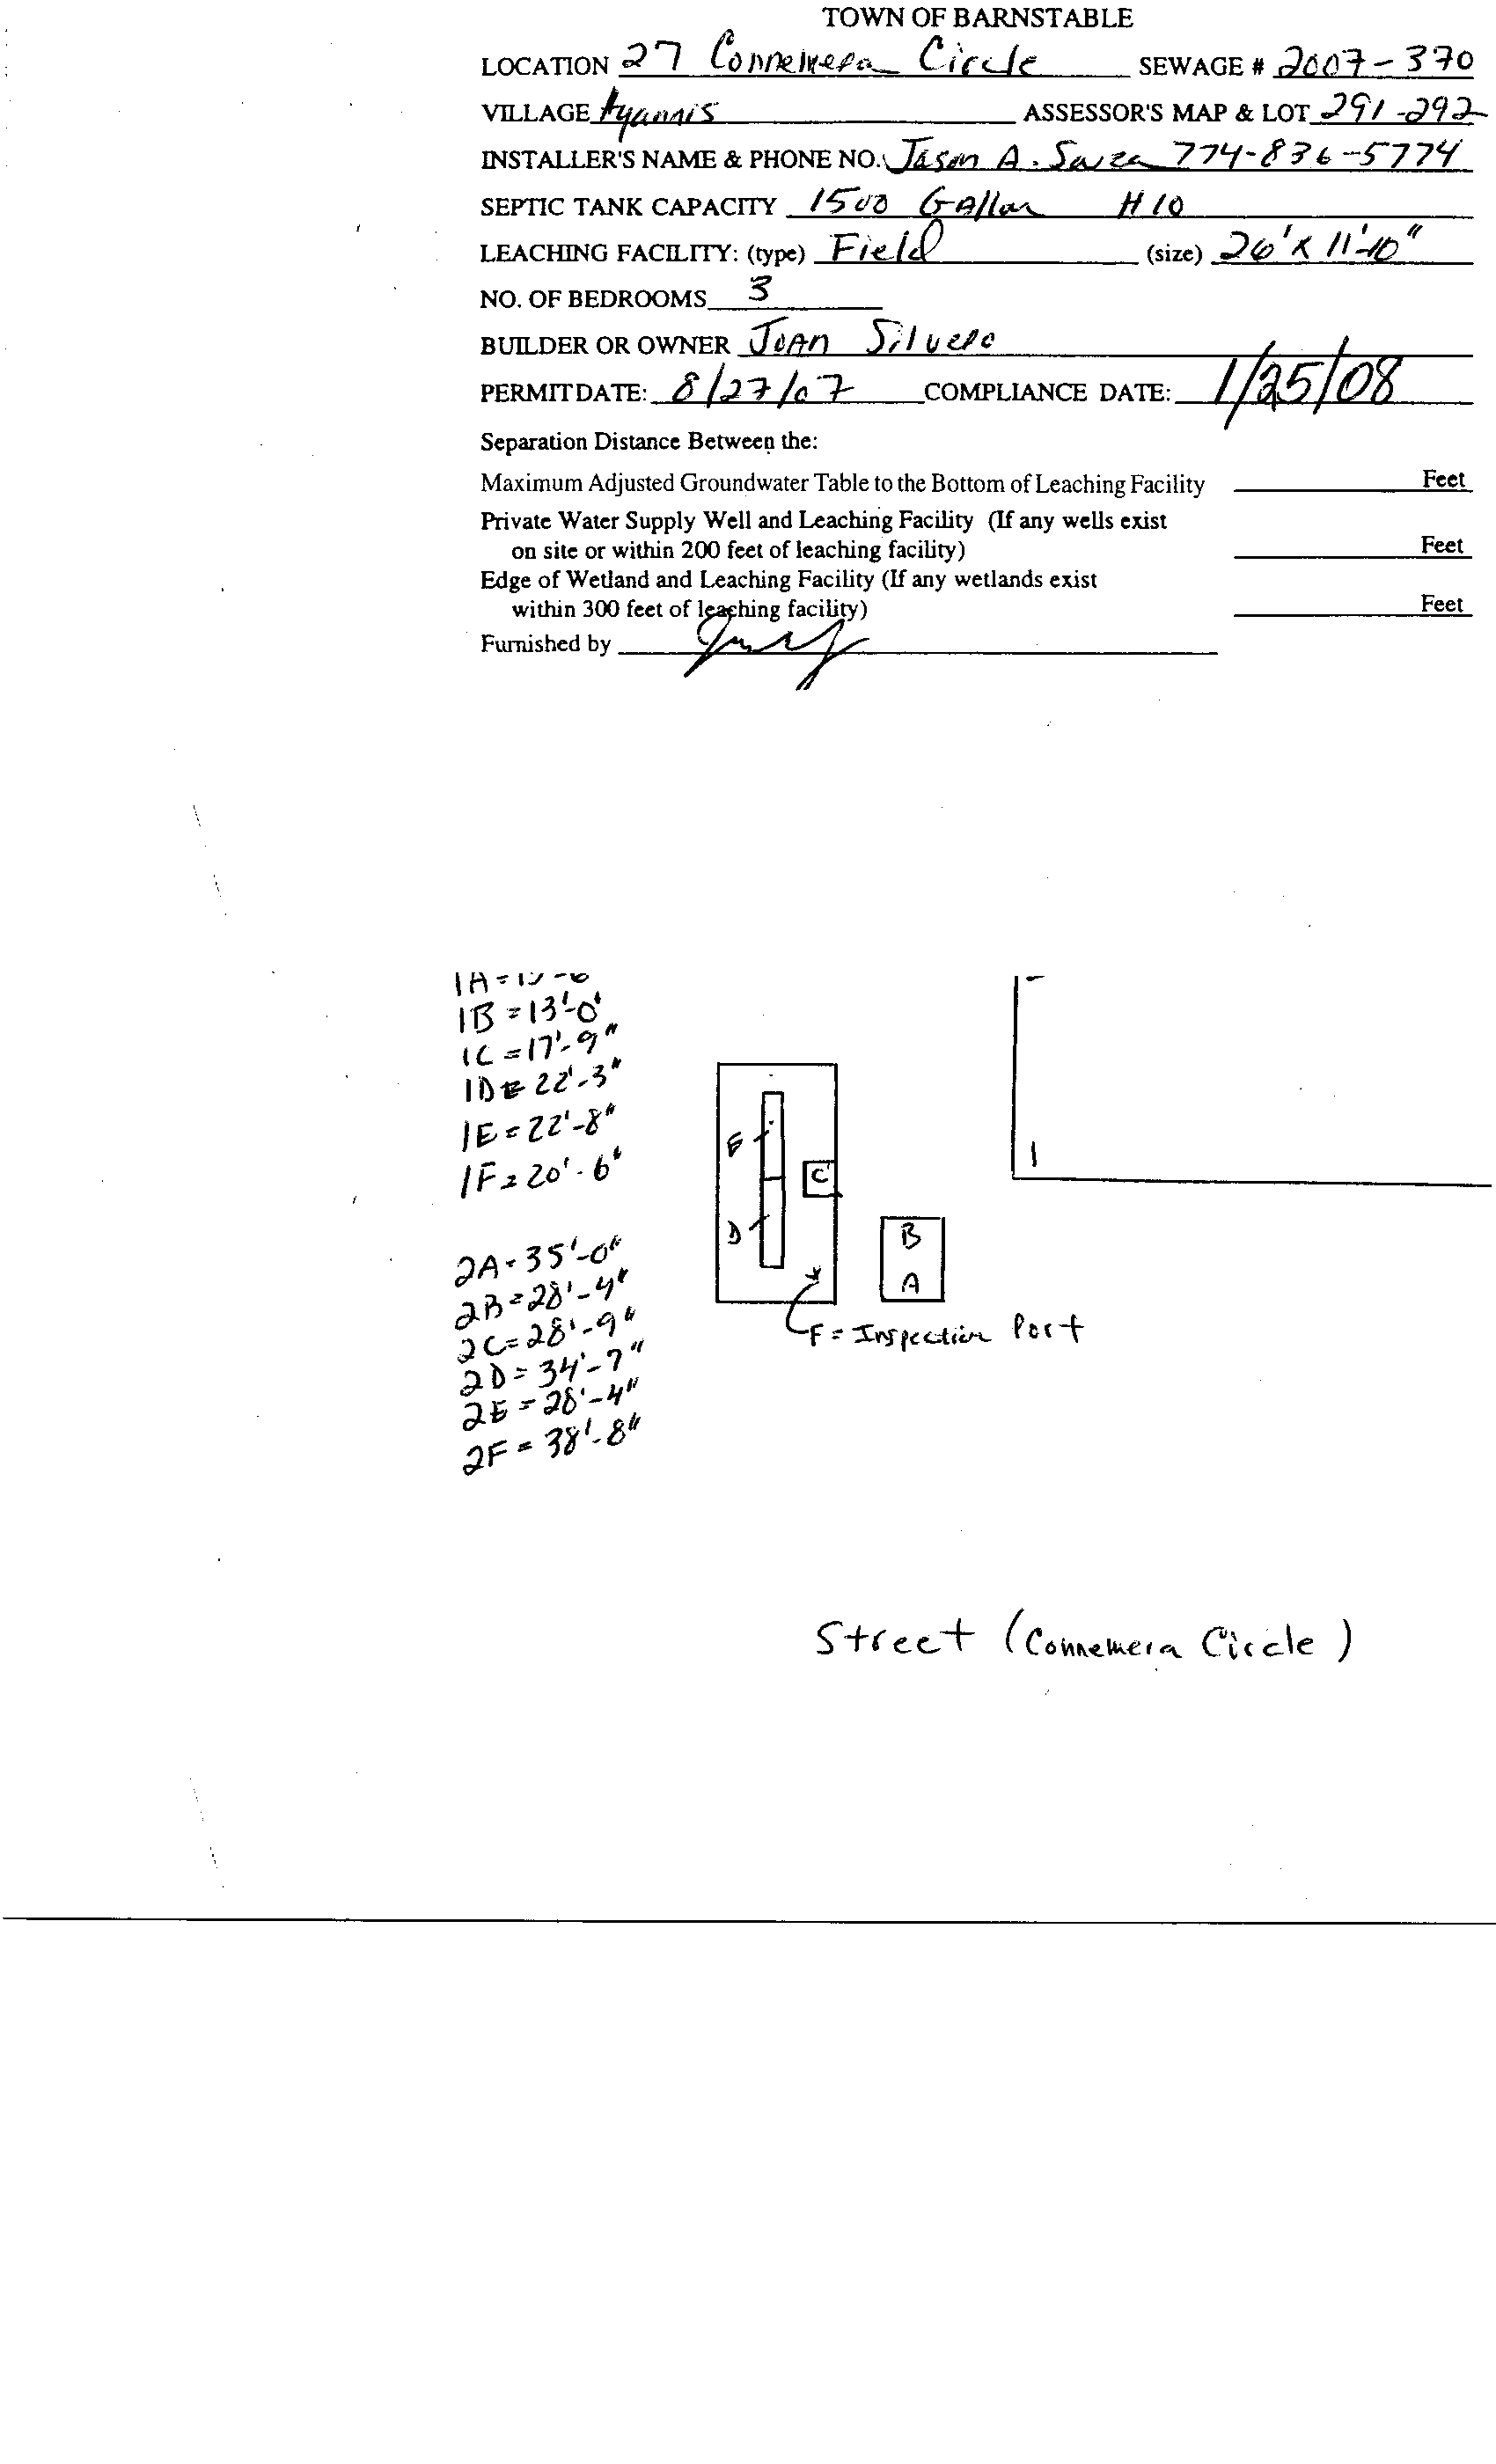 TOWN OF BARNSTABLE
LOCATION 27 Connemera Circle SEWAGE # 2007-370
VILLAGE Hyannis ASSESSOR'S MAP & LOT 291-292
INSTALLER'S NAME & PHONE NO. Jason A. Souza 774-836-5774
SEPTIC TANK CAPACITY 1500 Gallon H10
LEACHING FACILITY: (type) Field (size) 26' x 11'-10"
NO. OF BEDROOMS 3
BUILDER OR OWNER Joan
PERMITDATE: 8/27/07 COMPLIANCE DATE: 1/25/08
Separation Distance Between the:
Maximum Adjusted Groundwater Table to the Bottom of Leaching Facility Feet
Private Water Supply Well and Leaching Facility (If any wells exist
on site or within 200 feet of leaching facility) Feet
Edge of Wetland and Leaching Facility (If any wetlands exist
within 300 feet of leaching facility) Feet
Furnished by
1A =
1B = 13'-0"
1C = 17'-9"
1D = 22'-3"
1E = 22'-8"
1F = 20'-6"
E
C
1
D
B
A
2A = 35'-0"
2B = 28'-4"
2C = 28'-9"
2D = 34'-7"
2E = 28'-4"
2F = 38'-8"
F = Inspection Port
Street (Connemera Circle)